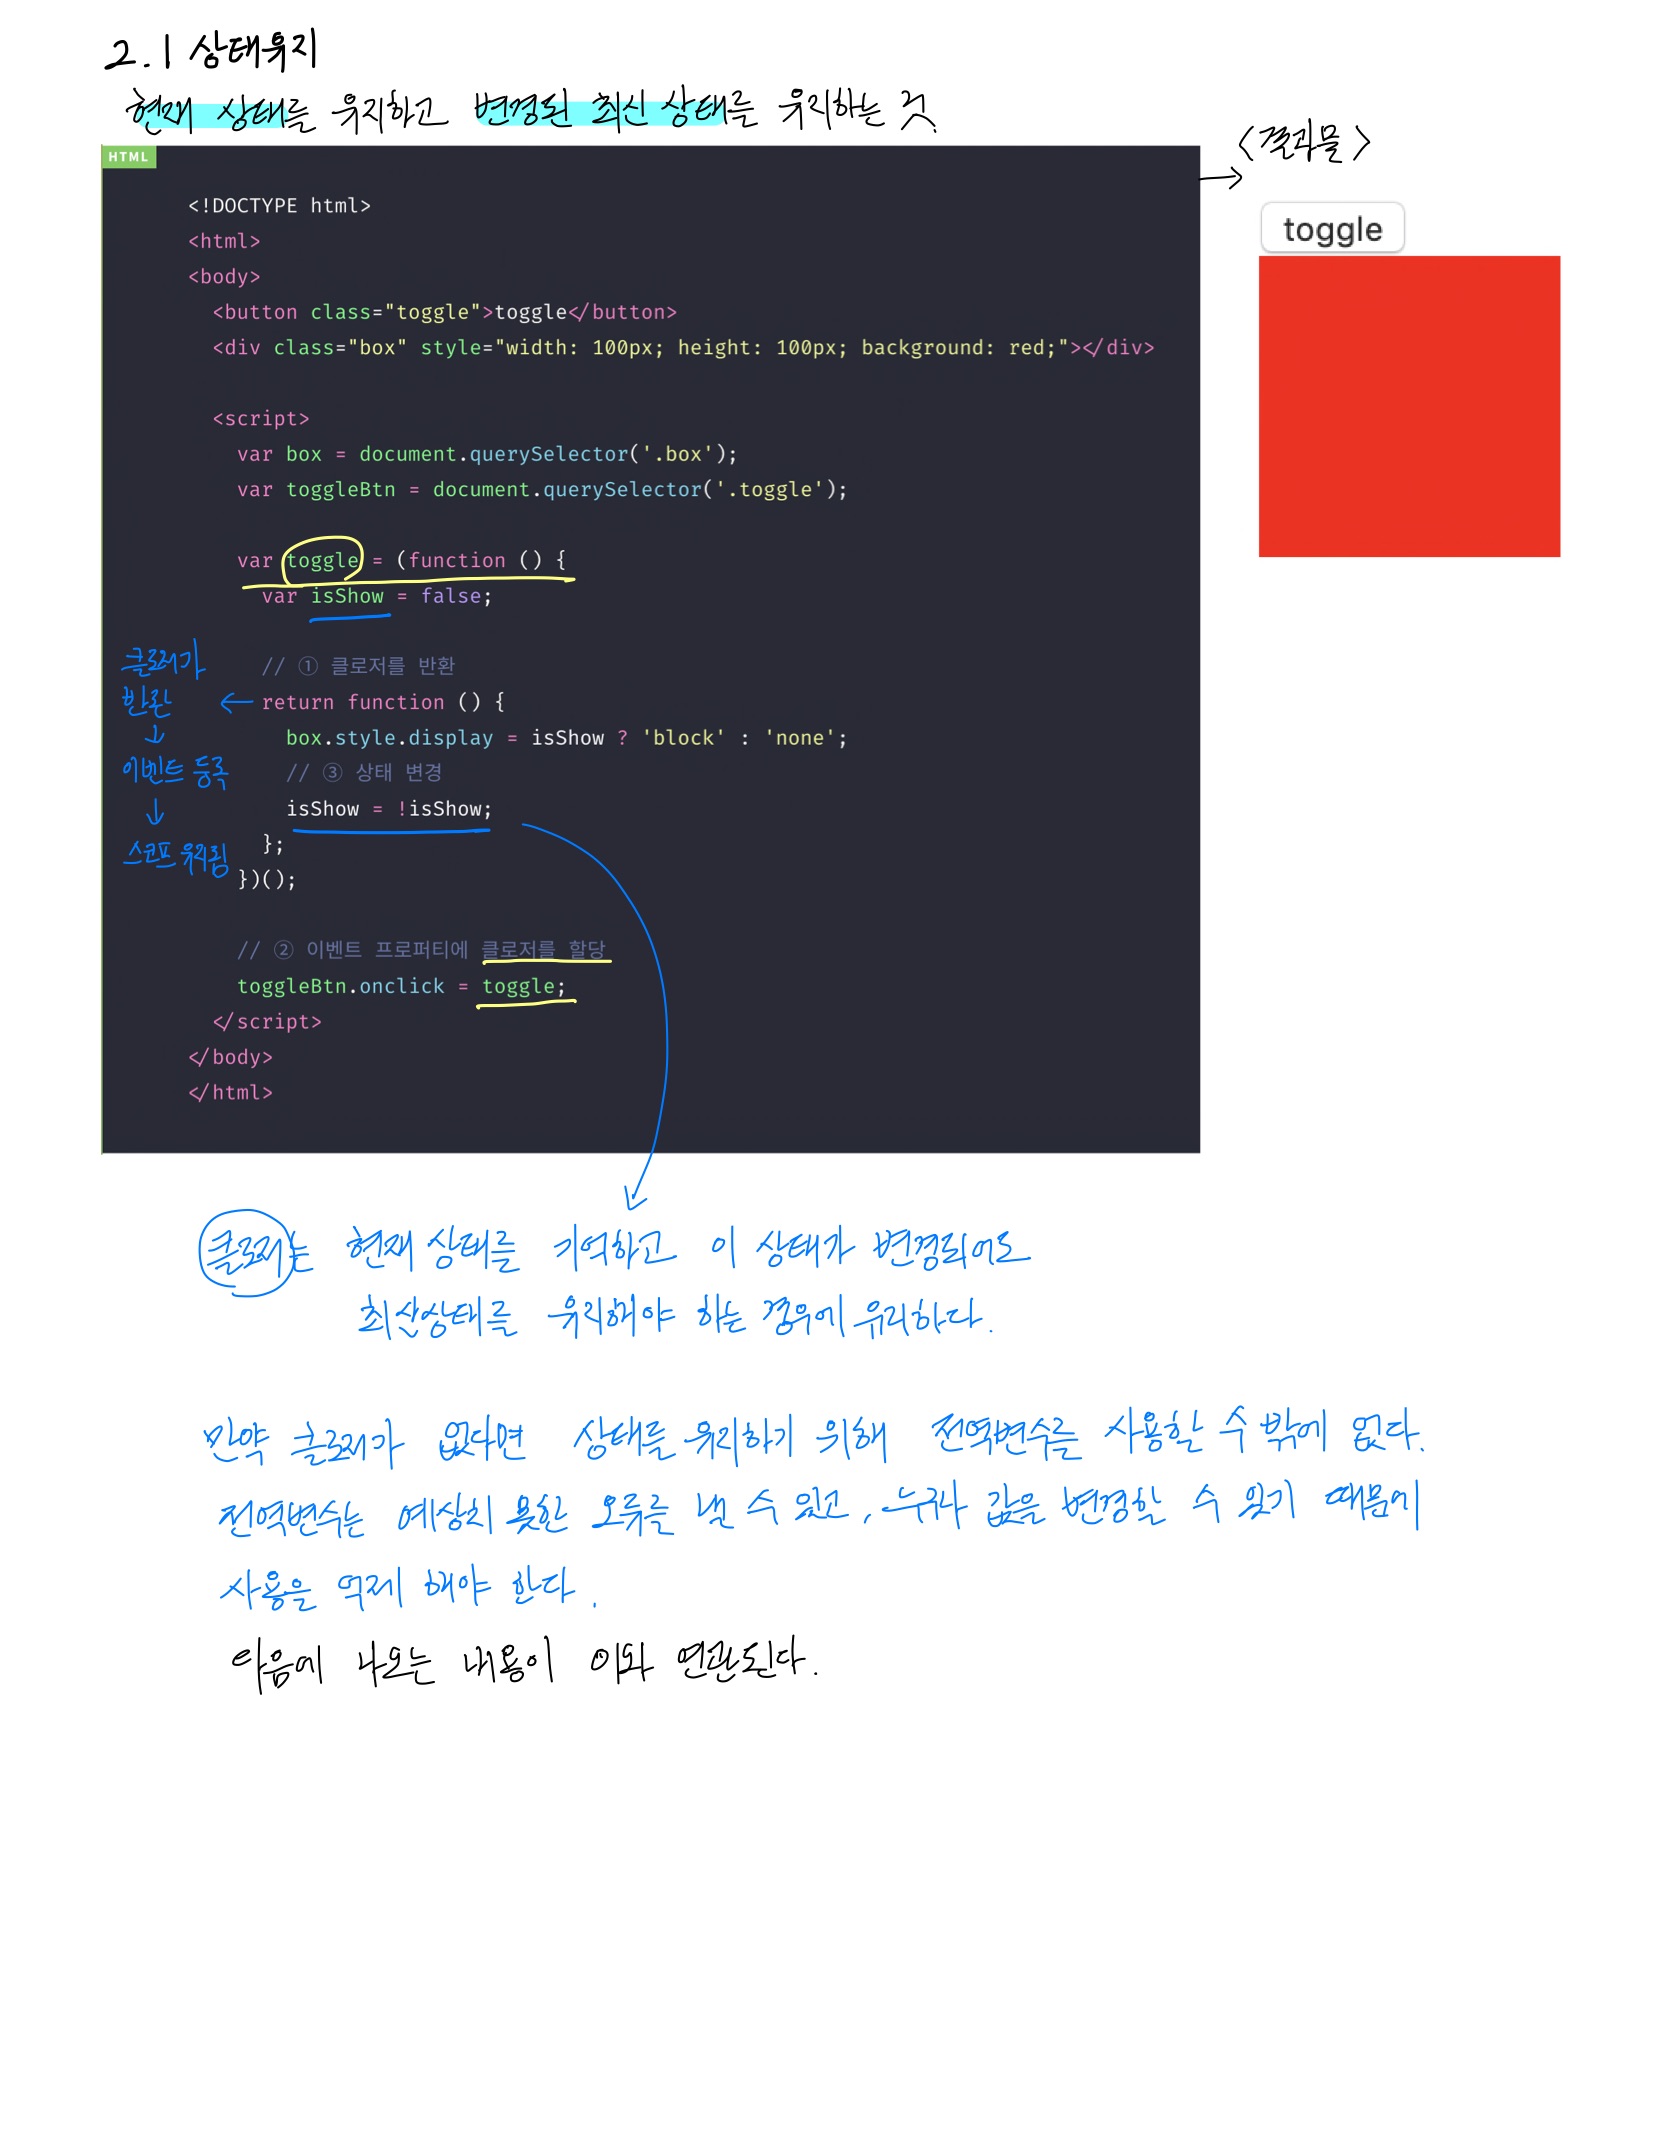 2.1 상태유지
현재 상태를 유지하고 변경된 최신 상태를 유지하는 것.
<결과물>
toggle
HTML
<!DOCTYPE html>
<html>
<body>
<button class="toggle">toggle</button>
<div class="box" style="width: 100px; height: 100px; background: red;"></div>
<script>
var box = document.querySelector('.box');
var toggleBtn = document.querySelector('.toggle');
var toggle = (function () {
var isShow = false;
// ① 클로저를 반환
return function () {
box.style.display = isShow ? 'block' : 'none';
// ③ 상태 변경
isShow = !isShow;
};
})();
// ② 이벤트 프로퍼티에 클로저를 할당
toggleBtn.onclick = toggle;
</script>
</body>
</html>
클로저가
반환
이벤트 등록
스코프 유지됨
클로저는 현재 상태를 기억하고 이 상태가 변경되어도
최신상태를 유지해야 하는 경우에 유리하다.
만약 클로저가 없다면 상태를 유지하기 위해 전역변수를 사용할 수 밖에 없다.
전역변수는 예상치 못한 오류를 낼 수 있고, 누구나 값을 변경할 수 있기 때문에
사용을 억제 해야 한다.
다음에 나오는 내용이 이와 연관된다.